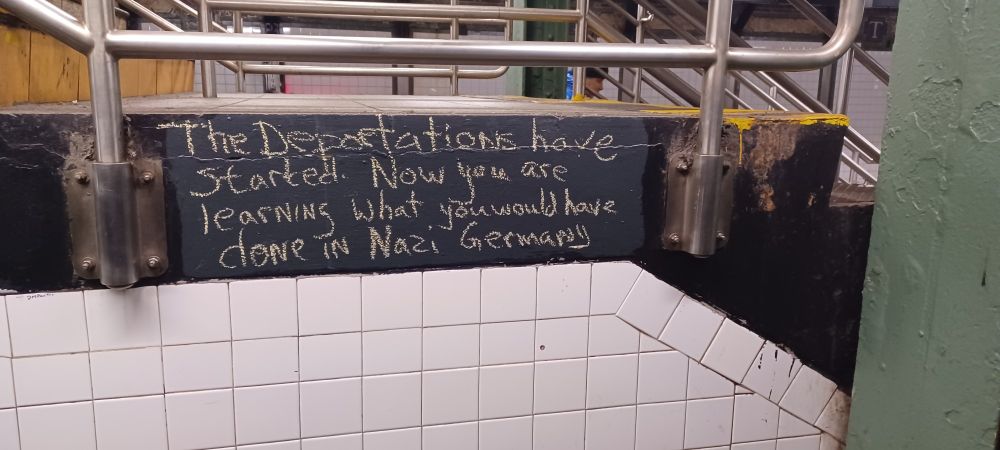 The Deportations have
started. Now you are
learning what you would have
done in Nazi Germany
T